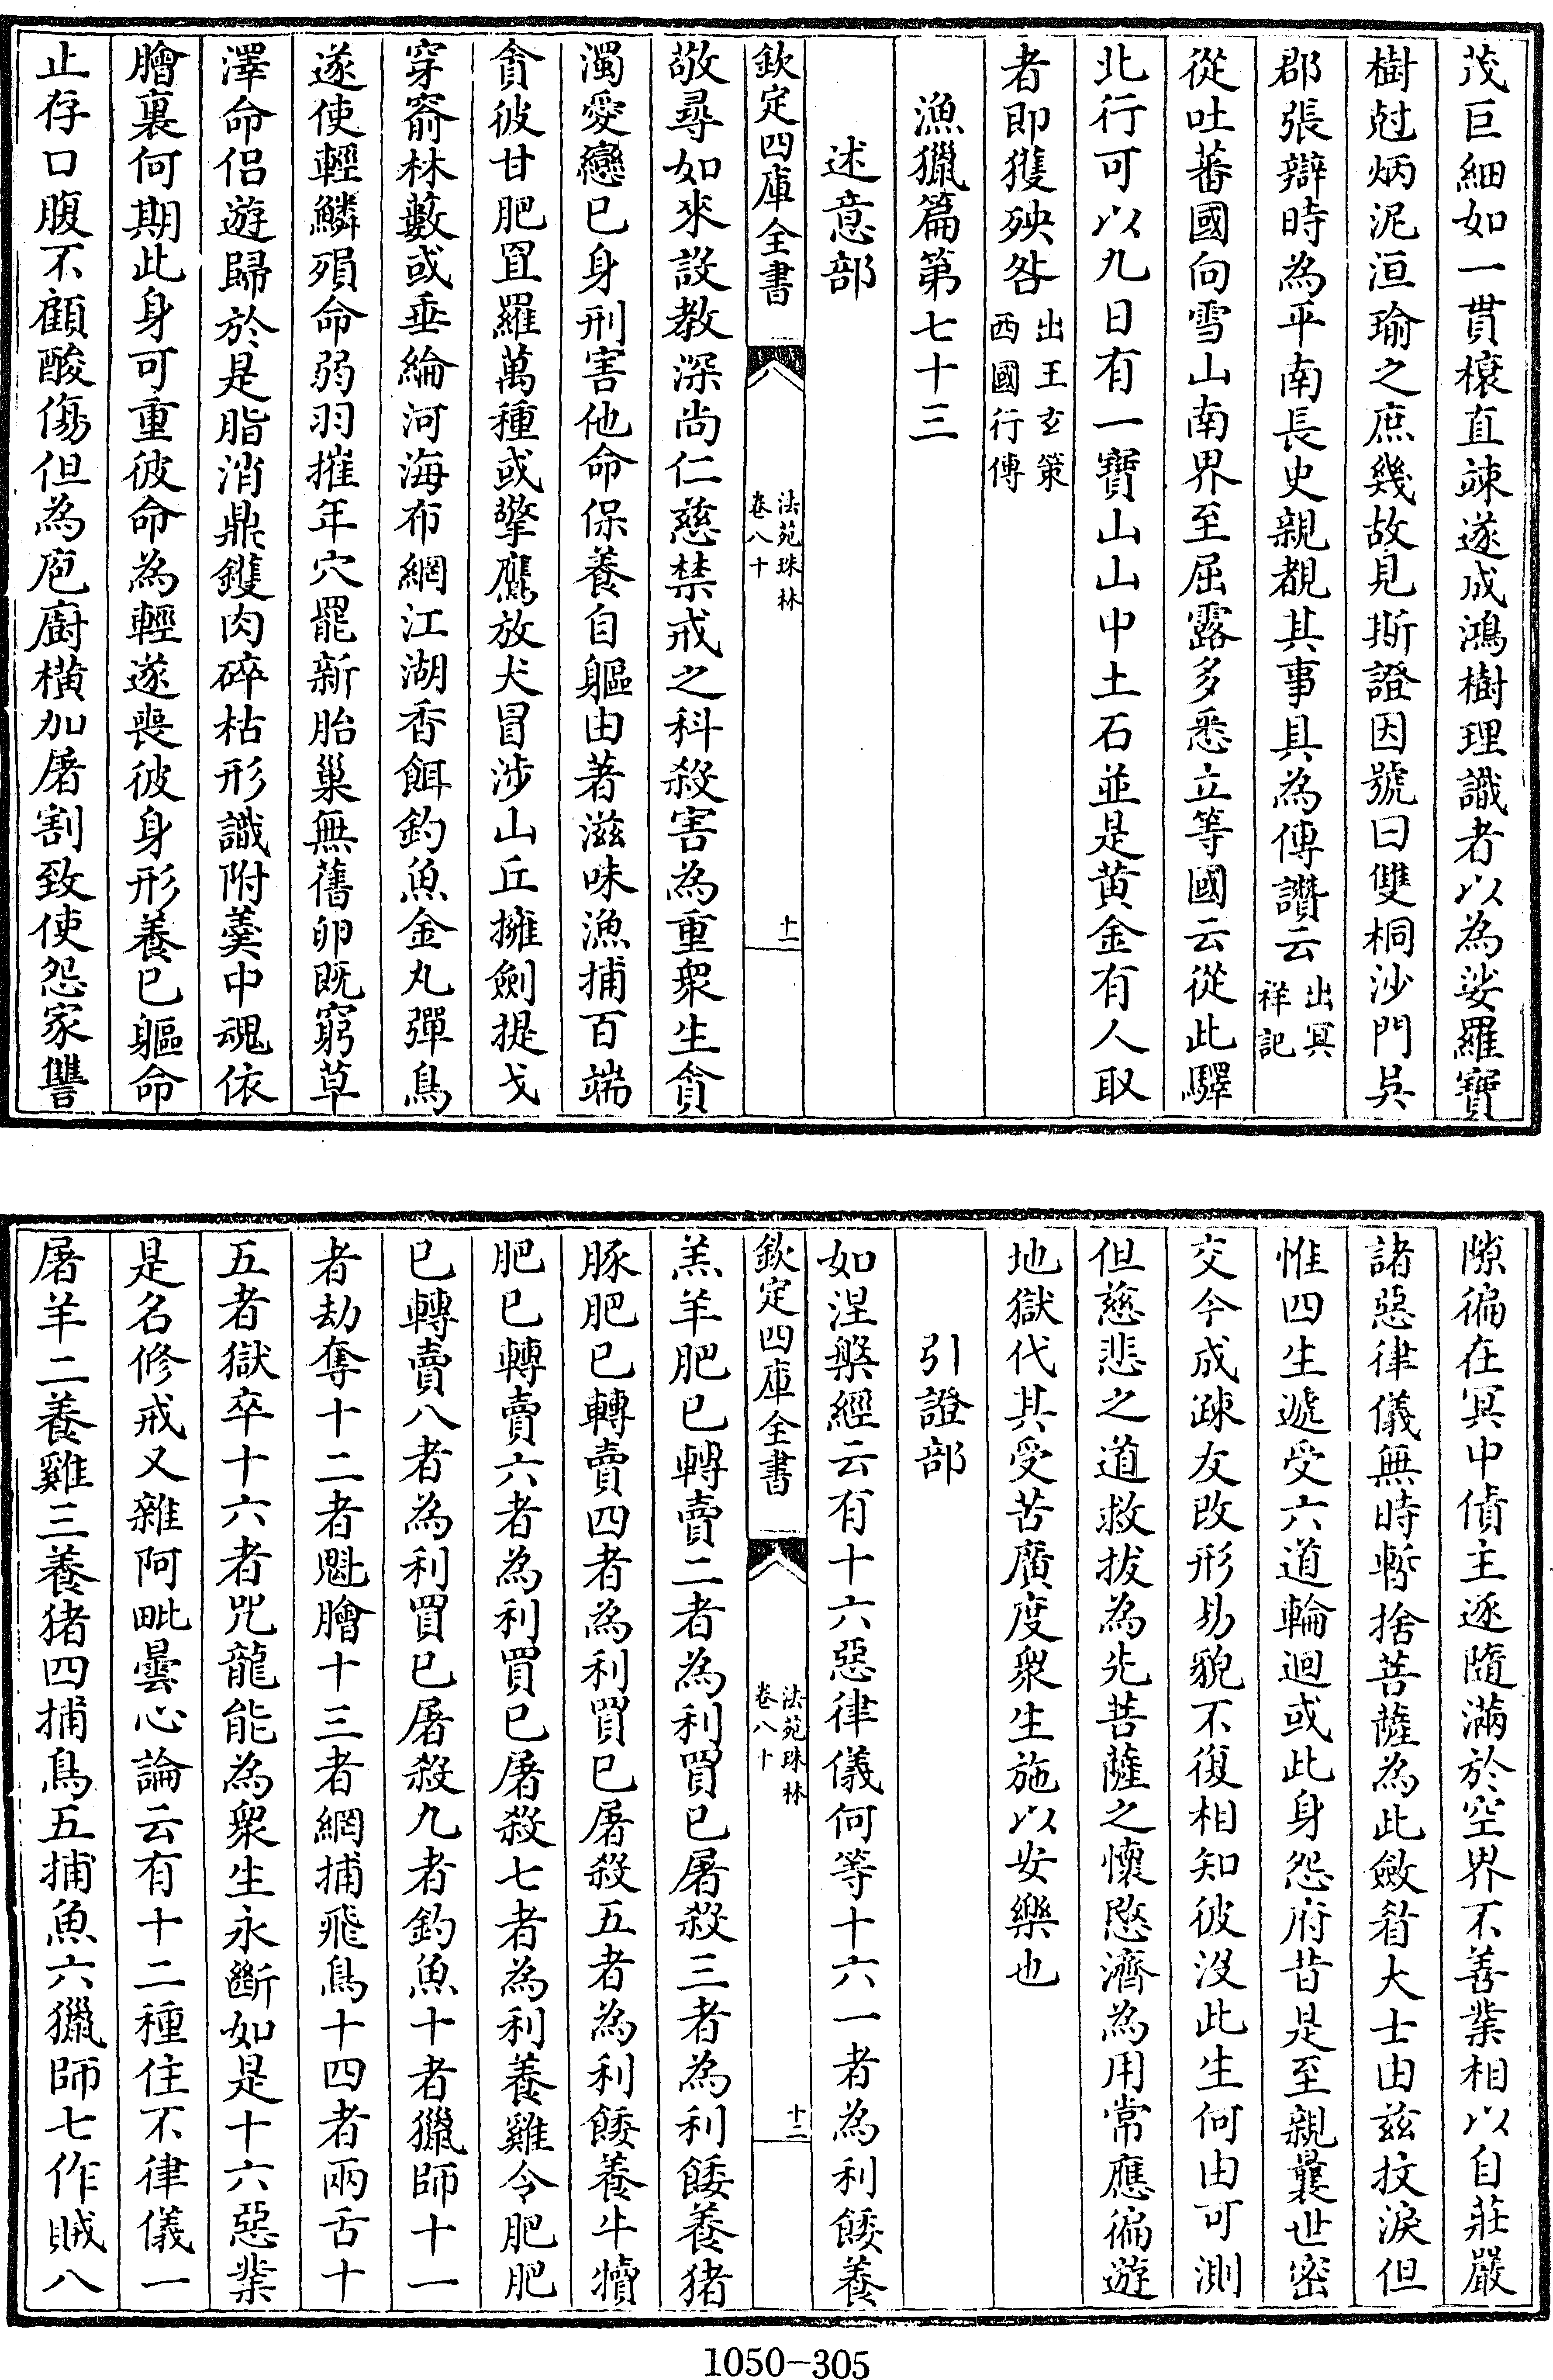 茂巨細如一貫榱直竦遂成鴻樹理識者以為娑羅寶
樹尅炳泥洹瑜之庶幾故見斯證因號曰雙桐沙門吳
郡張辯時為平南長史親覩其事具為傳讚云出冥祥記
從吐蕃國向雪山南界至屈露多悉立等國云從此驛
北行可以九日有一寶山山中土石並是黄金有人取
者即獲殃咎出王𤣥策西國行傳
漁獵篇第七十三
述意部
欽定四庫全書
法苑珠林
卷八十
十一
敬尋如來設教深尚仁慈禁戒之科殺害為重衆生貪
濁愛戀已身刑害他命保養自軀由著滋味漁捕百端
貪彼甘肥罝羅萬種或擎鷹放犬冒涉山丘擁劍提戈
穿窬林藪或垂綸河海布網江湖香餌釣魚金丸彈鳥
遂使輕鱗殞命弱羽摧年穴罷新胎巢無舊卵既窮草
澤命侣遊歸於是脂消鼎鑊肉碎枯形識附羮中魂依
膾裏何期此身可重彼命為輕遂喪彼身形養已軀命
止存口腹不顧酸傷但為庖廚横加屠割致使怨家讐
隙徧在冥中債主逐隨滿於空界不善業相以自莊嚴
諸惡律儀無時暫捨菩薩為此斂眉大士由兹抆淚但
惟四生遞受六道輪迴或此身怨府昔是至親曩世密
交今成疎友改形易貌不復相知彼沒此生何由可測
但慈悲之道救拔為先菩薩之懷愍濟為用常應徧遊
地獄代其受苦廣度衆生施以安樂也
引證部
如涅槃經云有十六惡律儀何等十六一者為利餧養
欽定四庫全書
法苑珠林
卷八十
十二
羔羊肥已轉賣二者為利買已屠殺三者為利餧養猪
豚肥已轉賣四者為利買已屠殺五者為利餧養牛犢
肥已轉賣六者為利買已屠殺七者為利養雞令肥肥
已轉賣八者為利買已屠殺九者釣魚十者獵師十一
者劫奪十二者魁膾十三者網捕飛鳥十四者兩舌十
五者獄卒十六者咒龍能為衆生永斷如是十六惡業
是名修戒又雜阿毗曇心論云有十二種住不律儀一
屠羊二養雞三養猪四捕鳥五捕魚六獵師七作賊八
1050-305